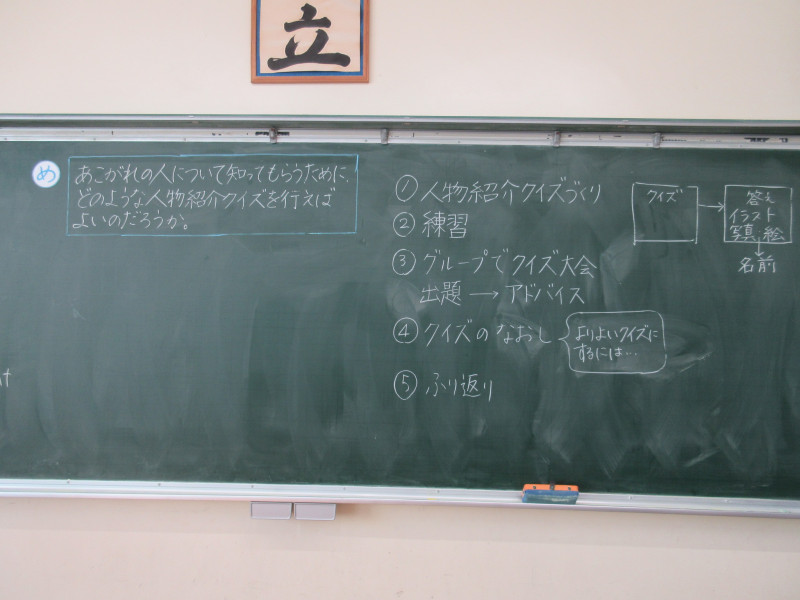 立
め
あこがれの人について知ってもらうために、
どのような人物紹介クイズを行えば
よいのだろうか。
① 人物紹介クイズづくり
② 練習
③ グループでクイズ大会
出題 → アドバイス
④ クイズのなおし
よりよいクイズに
するには…
⑤ ふり返り
クイズ
→
答え
イラスト
写真・絵
↓
名前